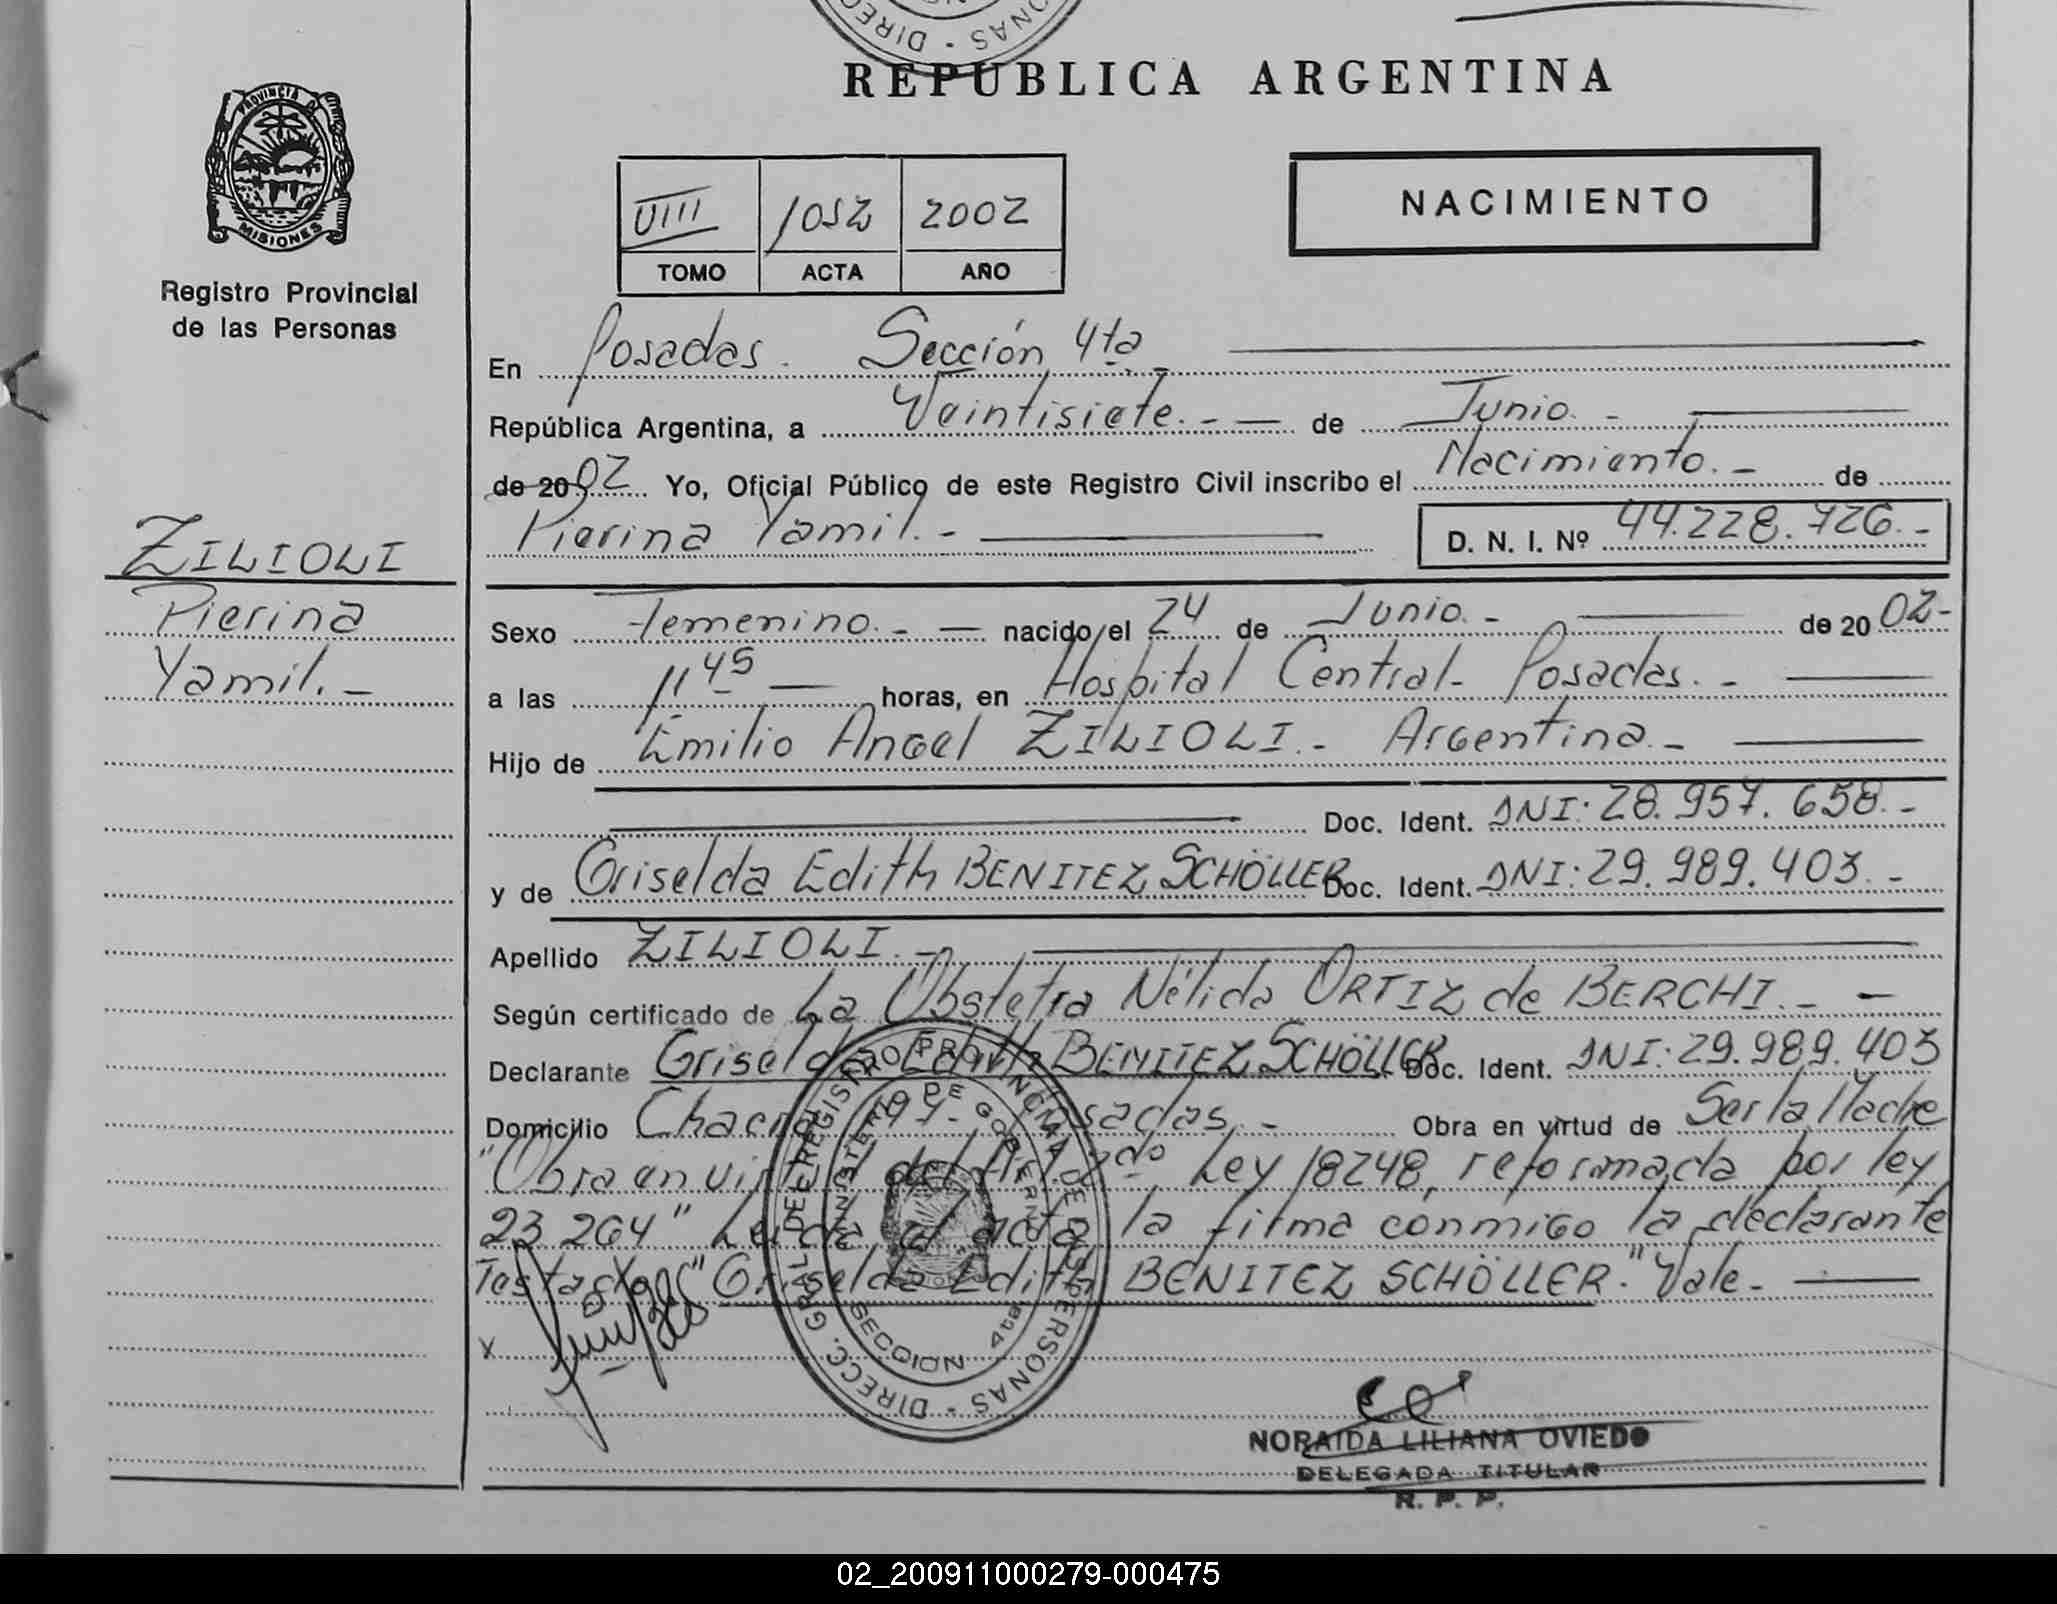 REPUBLICA ARGENTINA
PROVINCIA DE
MISIONES
Registro Provincial
de las Personas
VIII 1052 2002
TOMO ACTA AÑO
NACIMIENTO
En Posadas. Sección 4ta
República Argentina, a Veintisiete.- de Junio.-
de 2002 Yo, Oficial Público de este Registro Civil inscribo el Nacimiento.- de
Pierina Yamil.- D. N. I. Nº 44.228.726.-
ZILIOLI
Pierina
Yamil.-
Sexo Femenino.- nacido el 24 de Junio.- de 2002-
a las 11 45 horas, en Hospital Central- Posadas.-
Hijo de Emilio Angel ZILIOLI.- Argentina.-
Doc. Ident. DNI: 28.957.658.-
y de Griselda Edith BENITEZ SCHÖLLER Doc. Ident. DNI: 29.989.403.-
Apellido ZILIOLI.-
Según certificado de La Obstetra Nélida ORTIZ de BERCHI.-
Declarante Griselda Edith BENITEZ SCHÖLLER Doc. Ident. DNI: 29.989.403
Domicilio Chacra Posadas.- Obra en virtud de Ser la Madre
"Obra en virtud del 2do Ley 18248, reformada por ley
23.264" Leida el acta la firma conmigo la declarante
Testado: "Griselda Edith BENITEZ SCHÖLLER." Vale-
x
DIRECC. GRAL. DE REGISTRO PROVINCIAL DE LAS PERSONAS -
MINISTERIO DE GOBIERNO
SECCION 4ta
NORAIDA LILIANA OVIEDO
DELEGADA TITULAR
R. P. P.
02_200911000279-000475